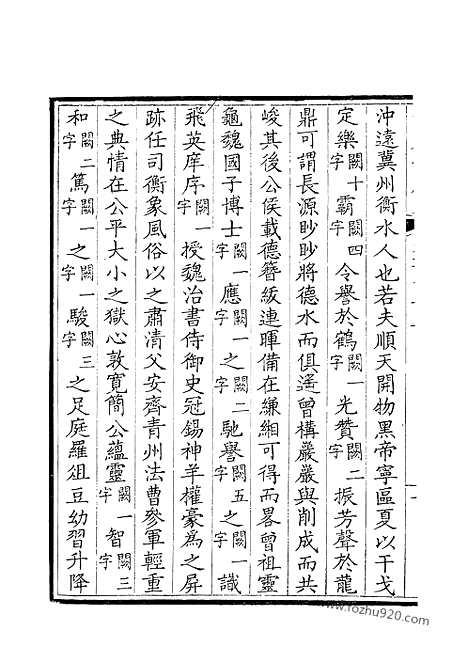 沖遠冀州衡水人也若夫順天開物黑帝寧區夏以干戈
定樂闕十字霸闕四字令譽於鶴闕一字光贊闕二字振芳聲於龍
鼎可謂長源眇眇將德水而俱遙曾構巖巖與削成而共
峻其後公侯載德簪紱連暉備在縑緗可得而畧曾祖靈
龜魏國子博士闕一字應闕一字之闕二字馳譽闕五字之闕一字識
飛英庠序闕一字授魏治書侍御史冠錫神羊權豪為之屏
跡任司衡象風俗以之肅清父安齊青州法曹參軍輕重
之典情在公平大小之獄心敦寬簡公蘊靈闕一字智闕三字
和闕二字篤闕一字之闕一字駿闕三字之足庭羅俎豆幼習升降
www.fozhu920.com